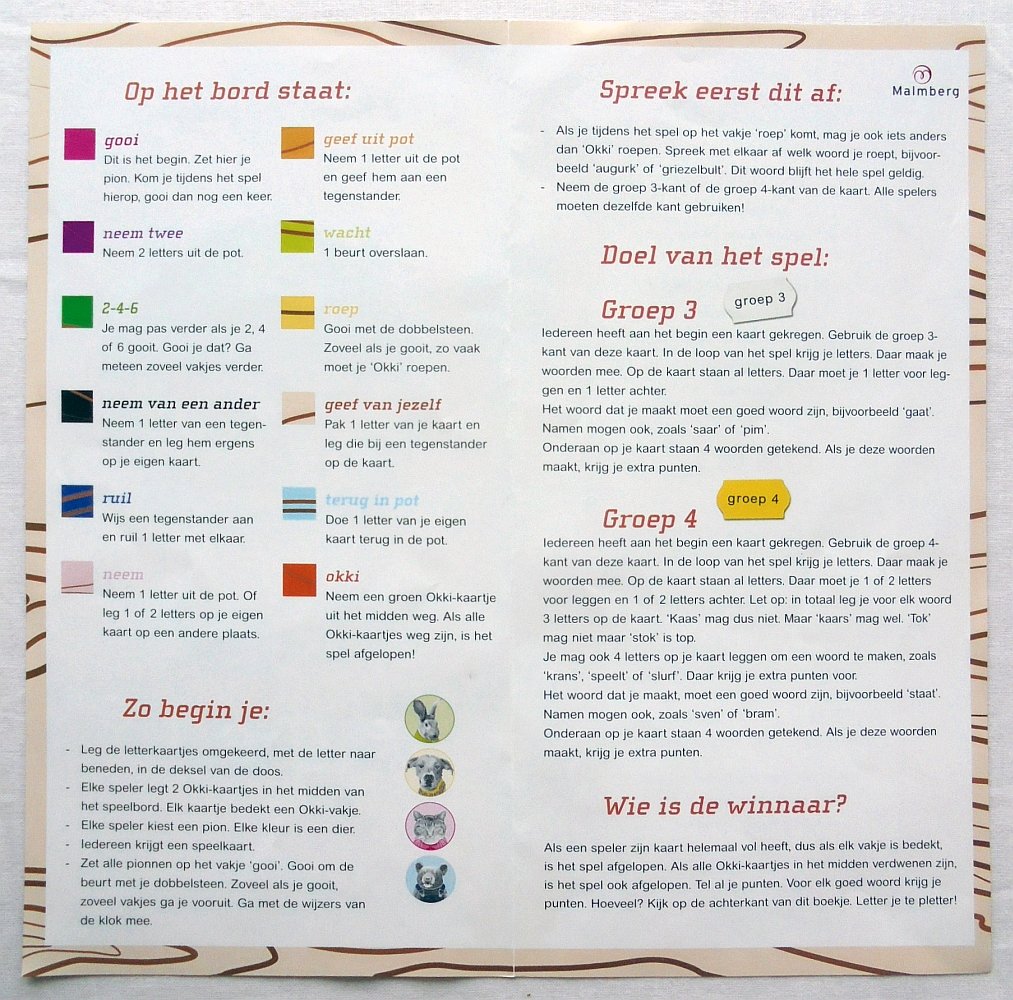 Op het bord staat:
gooi
Dit is het begin. Zet hier je
pion. Kom je tijdens het spel
hierop, gooi dan nog een keer.
neem twee
Neem 2 letters uit de pot.
2-4-6
Je mag pas verder als je 2, 4
of 6 gooit. Gooi je dat? Ga
meteen zoveel vakjes verder.
neem van een ander
Neem 1 letter van een tegen-
stander en leg hem ergens
op je eigen kaart.
ruil
Wijs een tegenstander aan
en ruil 1 letter met elkaar.
neem
Neem 1 letter uit de pot. Of
leg 1 of 2 letters op je eigen
kaart op een andere plaats.
geef uit pot
Neem 1 letter uit de pot
en geef hem aan een
tegenstander.
wacht
1 beurt overslaan.
roep
Gooi met de dobbelsteen.
Zoveel als je gooit, zo vaak
moet je 'Okki' roepen.
geef van jezelf
Pak 1 letter van je kaart en
leg die bij een tegenstander
op de kaart.
terug in pot
Doe 1 letter van je eigen
kaart terug in de pot.
okki
Neem een groen Okki-kaartje
uit het midden weg. Als alle
Okki-kaartjes weg zijn, is het
spel afgelopen!
Zo begin je:
- Leg de letterkaartjes omgekeerd, met de letter naar
beneden, in de deksel van de doos.
- Elke speler legt 2 Okki-kaartjes in het midden van
het speelbord. Elk kaartje bedekt een Okki-vakje.
- Elke speler kiest een pion. Elke kleur is een dier.
- Iedereen krijgt een speelkaart.
- Zet alle pionnen op het vakje 'gooi'. Gooi om de
beurt met je dobbelsteen. Zoveel als je gooit,
zoveel vakjes ga je vooruit. Ga met de wijzers van
de klok mee.
Spreek eerst dit af:
Malmberg
- Als je tijdens het spel op het vakje 'roep' komt, mag je ook iets anders
dan 'Okki' roepen. Spreek met elkaar af welk woord je roept, bijvoor-
beeld 'augurk' of 'griezelbult'. Dit woord blijft het hele spel geldig.
- Neem de groep 3-kant of de groep 4-kant van de kaart. Alle spelers
moeten dezelfde kant gebruiken!
Doel van het spel:
Groep 3
groep 3
Iedereen heeft aan het begin een kaart gekregen. Gebruik de groep 3-
kant van deze kaart. In de loop van het spel krijg je letters. Daar maak je
woorden mee. Op de kaart staan al letters. Daar moet je 1 letter voor leg-
gen en 1 letter achter.
Het woord dat je maakt moet een goed woord zijn, bijvoorbeeld 'gaat'.
Namen mogen ook, zoals 'saar' of 'pim'.
Onderaan op je kaart staan 4 woorden getekend. Als je deze woorden
maakt, krijg je extra punten.
Groep 4
groep 4
Iedereen heeft aan het begin een kaart gekregen. Gebruik de groep 4-
kant van deze kaart. In de loop van het spel krijg je letters. Daar maak je
woorden mee. Op de kaart staan al letters. Daar moet je 1 of 2 letters
voor leggen en 1 of 2 letters achter. Let op: in totaal leg je voor elk woord
3 letters op de kaart. 'Kaas' mag dus niet. Maar 'kaars' mag wel. 'Tok'
mag niet maar 'stok' is top.
Je mag ook 4 letters op je kaart leggen om een woord te maken, zoals
'krans', 'speelt' of 'slurf'. Daar krijg je extra punten voor.
Het woord dat je maakt, moet een goed woord zijn, bijvoorbeeld 'staat'.
Namen mogen ook, zoals 'sven' of 'bram'.
Onderaan op je kaart staan 4 woorden getekend. Als je deze woorden
maakt, krijg je extra punten.
Wie is de winnaar?
Als een speler zijn kaart helemaal vol heeft, dus als elk vakje is bedekt,
is het spel afgelopen. Als alle Okki-kaartjes in het midden verdwenen zijn,
is het spel ook afgelopen. Tel al je punten. Voor elk goed woord krijg je
punten. Hoeveel? Kijk op de achterkant van dit boekje. Letter je te pletter!